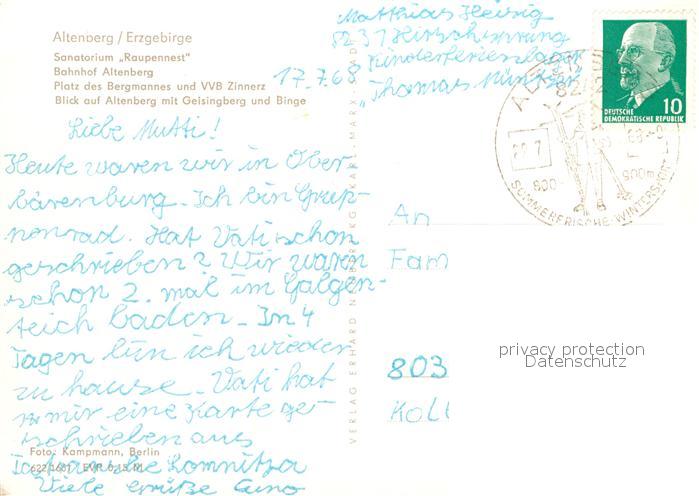 Altenberg / Erzgebirge
Sanatorium „Raupennest"
Bahnhof Altenberg
Platz des Bergmannes und VVB Zinnerz
Blick auf Altenberg mit Geisingberg und Binge
Matthias Heisig
8237 Hirschsprung
Kinderferienlager
„Thomas Müntzer"
17.7.68
Liebe Mutti!
Heute waren wir in Ober-
bärenburg. Ich bin Grup-
nenrad. Hat Vati schon
geschrieben? Wir waren
schon 2. mal im Galgen-
teich baden. In 4
Tagen bin ich wieder
zu hause. Vati hat
mir eine Karte ge-
schrieben aus
Tatranska Lomnitza
Viele Grüße
Foto: Kampmann, Berlin
VERLAG ERHARD NEUBERT KG KARL-MARX-
10
DEUTSCHE
DEMOKRATISCHE REPUBLIK
22.7
800-
900m
SOMMERFRISCHE-WINTERSPORT
An
Fam
803
privacy protection
Datenschutz